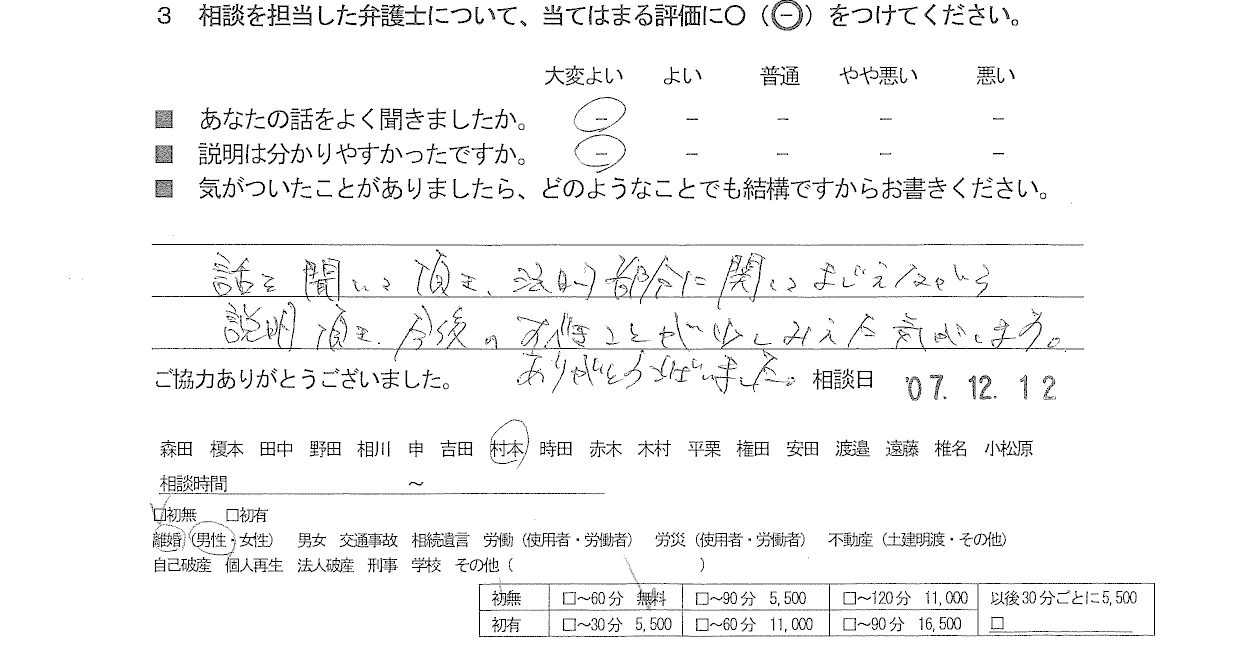 3 相談を担当した弁護士について、当てはまる評価に○(⊖)をつけてください。
大変よい よい 普通 やや悪い 悪い
■ あなたの話をよく聞きましたか。 － － － － －
■ 説明は分かりやすかったですか。 － － － － －
■ 気がついたことがありましたら、どのようなことでも結構ですからお書きください。
話を聞いて頂き、法的部分に関してまじえながら
説明頂き、今後のすべきことが少しみえた気がします。
ありがとうございました。
ご協力ありがとうございました。 相談日 '07.12.12
森田 榎本 田中 野田 相川 申 吉田 村本 時田 赤木 木村 平栗 権田 安田 渡邉 遠藤 椎名 小松原
相談時間 ～
□初無 □初有
離婚(男性・女性) 男女 交通事故 相続遺言 労働(使用者・労働者) 労災(使用者・労働者) 不動産(土建明渡・その他)
自己破産 個人再生 法人破産 刑事 学校 その他( )
初無 □～60分 無料 □～90分 5,500 □～120分 11,000 以後30分ごとに5,500
初有 □～30分 5,500 □～60分 11,000 □～90分 16,500 □